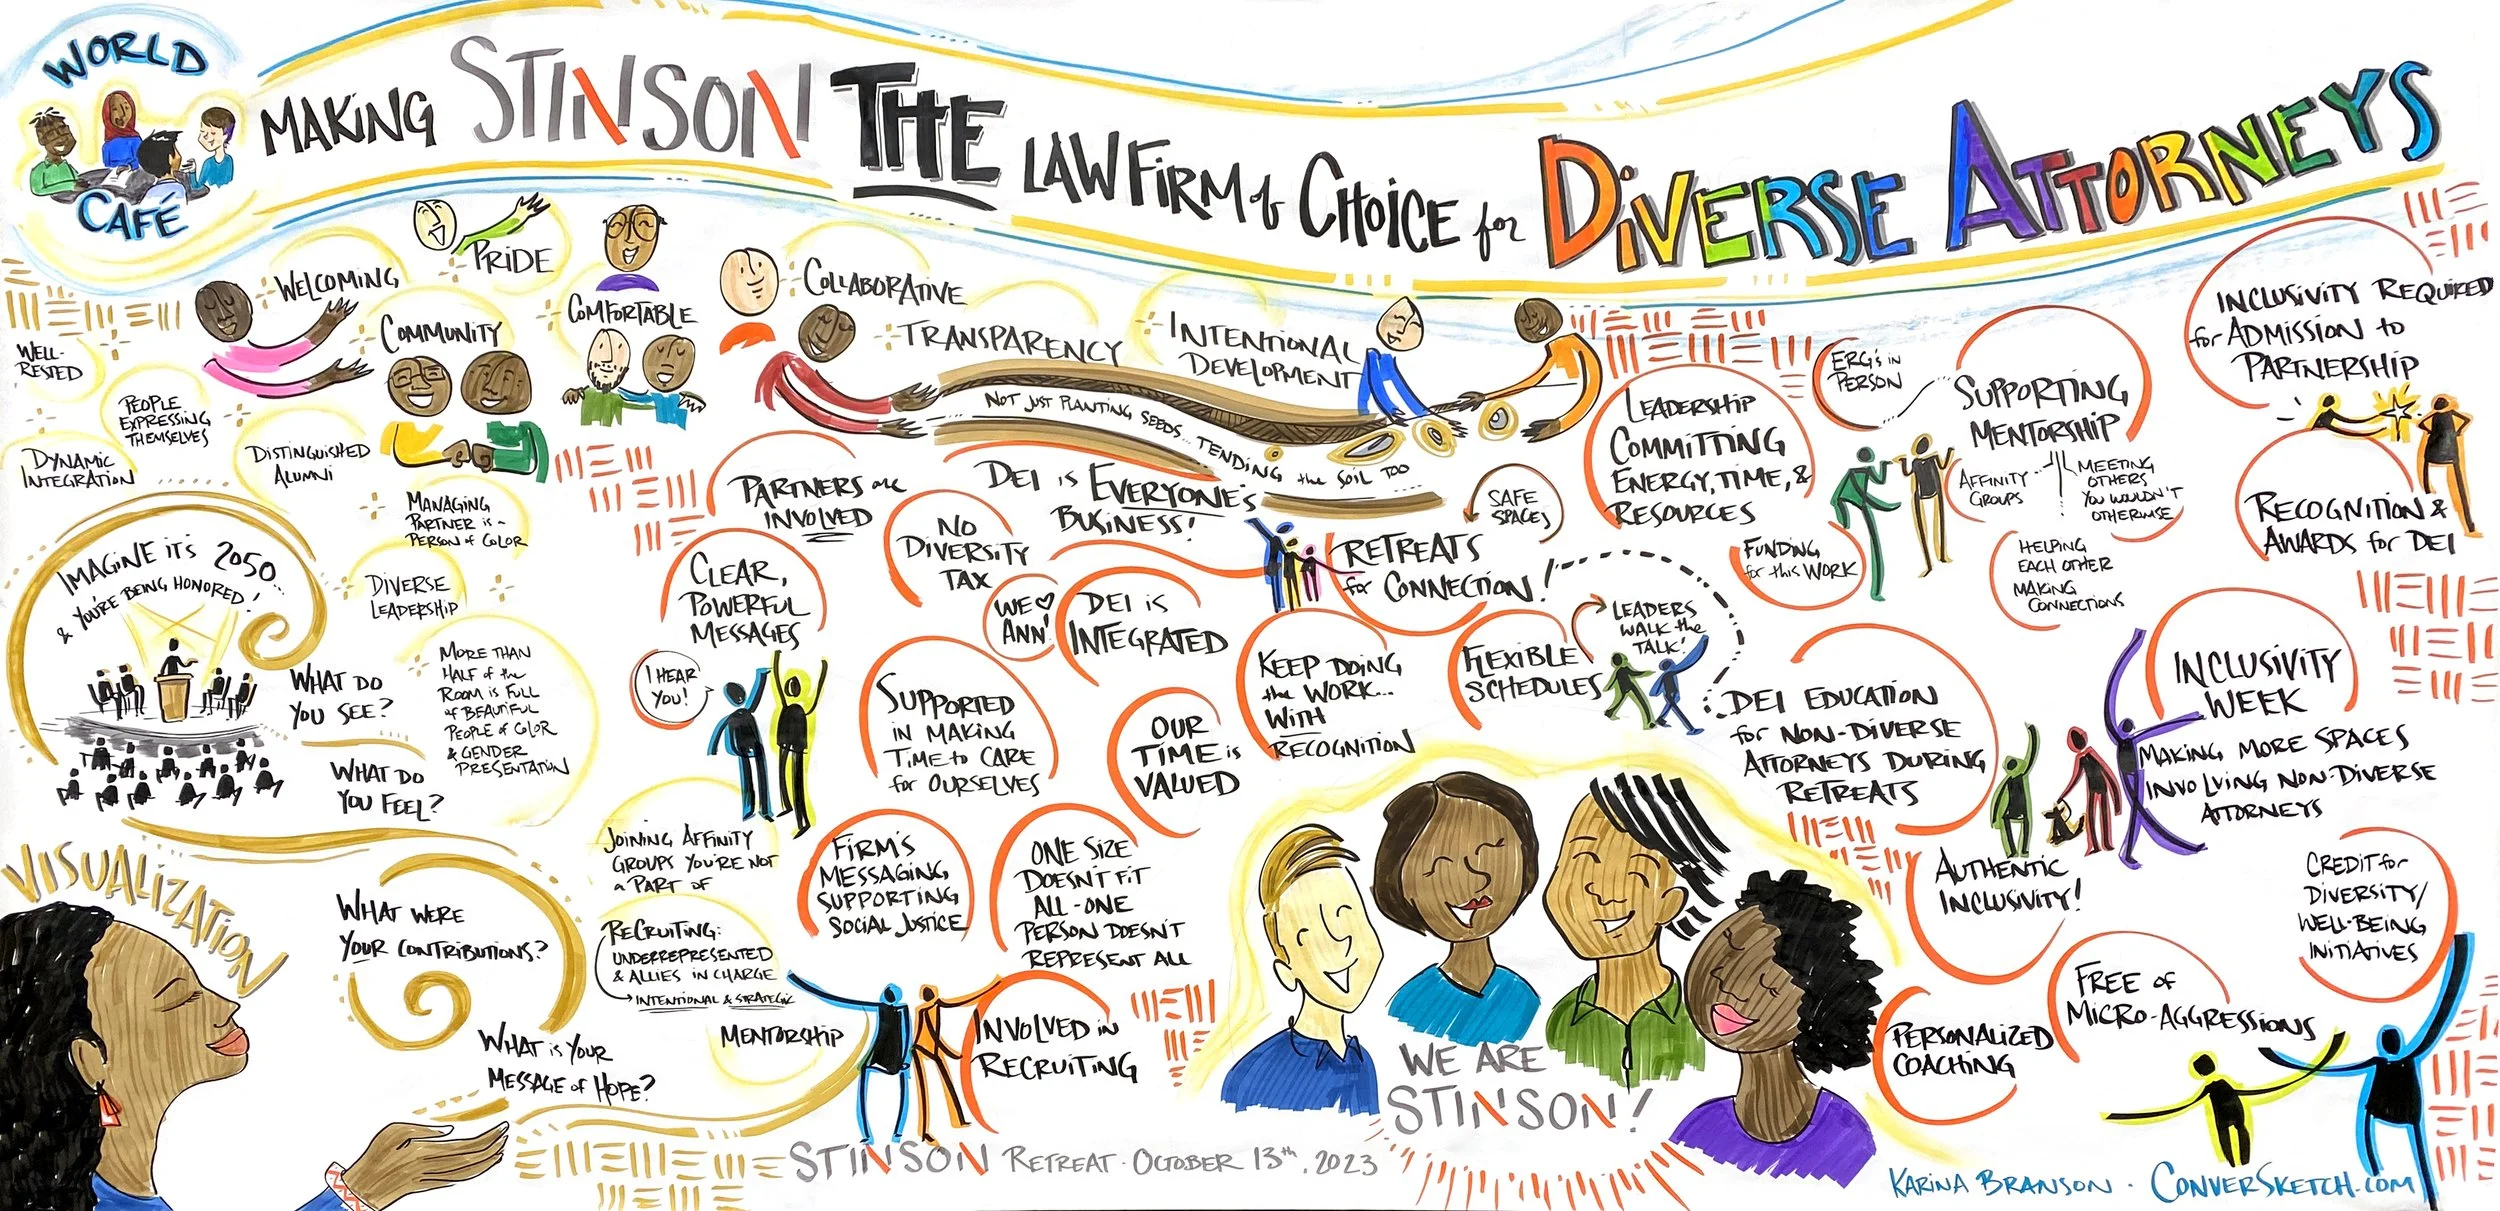 WORLD
CAFÉ
MAKING STINSON THE LAW FIRM of CHOICE for DIVERSE ATTORNEYS
WELCOMING
PRIDE
COMMUNITY
COMFORTABLE
COLLABORATIVE
TRANSPARENCY
INTENTIONAL
DEVELOPMENT
NOT JUST PLANTING SEEDS... TENDING the SOIL TOO
WELL-
RESTED
PEOPLE
EXPRESSING
THEMSELVES
DYNAMIC
INTEGRATION
DISTINGUISHED
ALUMNI
MANAGING
PARTNER is a
PERSON of COLOR
DIVERSE
LEADERSHIP
MORE THAN
HALF of the
ROOM is FULL
of BEAUTIFUL
PEOPLE of COLOR
& GENDER
PRESENTATION
IMAGINE IT'S 2050...
& YOU'RE BEING HONORED!
WHAT DO
YOU SEE?
WHAT DO
YOU FEEL?
VISUALIZATION
WHAT WERE
YOUR CONTRIBUTIONS?
WHAT is YOUR
MESSAGE of HOPE?
JOINING AFFINITY
GROUPS YOU'RE NOT
a PART OF
RECRUITING:
UNDERREPRESENTED
& ALLIES IN CHARGE
INTENTIONAL & STRATEGIC
MENTORSHIP
PARTNERS are
INVOLVED
CLEAR,
POWERFUL
MESSAGES
I HEAR
YOU!
NO
DIVERSITY
TAX
DEI is EVERYONE'S
BUSINESS!
WE ♡
ANN!
DEI is
INTEGRATED
SUPPORTED
IN MAKING
TIME to CARE
for OURSELVES
OUR
TIME is
VALUED
FIRM'S
MESSAGING,
SUPPORTING
SOCIAL JUSTICE
ONE SIZE
DOESN'T FIT
ALL - ONE
PERSON DOESN'T
REPRESENT ALL
INVOLVED in
RECRUITING
SAFE
SPACES
RETREATS
for CONNECTION!
KEEP DOING
the WORK...
WITH
RECOGNITION
FLEXIBLE
SCHEDULES
LEADERS
WALK the
TALK!
LEADERSHIP
COMMITTING
ENERGY, TIME, &
RESOURCES
FUNDING
for this WORK
ERG's in
PERSON
SUPPORTING
MENTORSHIP
AFFINITY
GROUPS
MEETING
OTHERS
YOU WOULDN'T
OTHERWISE
HELPING
EACH OTHER
MAKING
CONNECTIONS
INCLUSIVITY REQUIRED
for ADMISSION to
PARTNERSHIP
RECOGNITION &
AWARDS for DEI
DEI EDUCATION
for NON-DIVERSE
ATTORNEYS DURING
RETREATS
INCLUSIVITY
WEEK
MAKING MORE SPACES
INVOLVING NON-DIVERSE
ATTORNEYS
AUTHENTIC
INCLUSIVITY!
CREDIT for
DIVERSITY/
WELL-BEING
INITIATIVES
FREE of
MICRO-AGGRESSIONS
PERSONALIZED
COACHING
WE ARE
STINSON!
STINSON RETREAT · OCTOBER 13th, 2023
KARINA BRANSON · CONVERSKETCH.COM